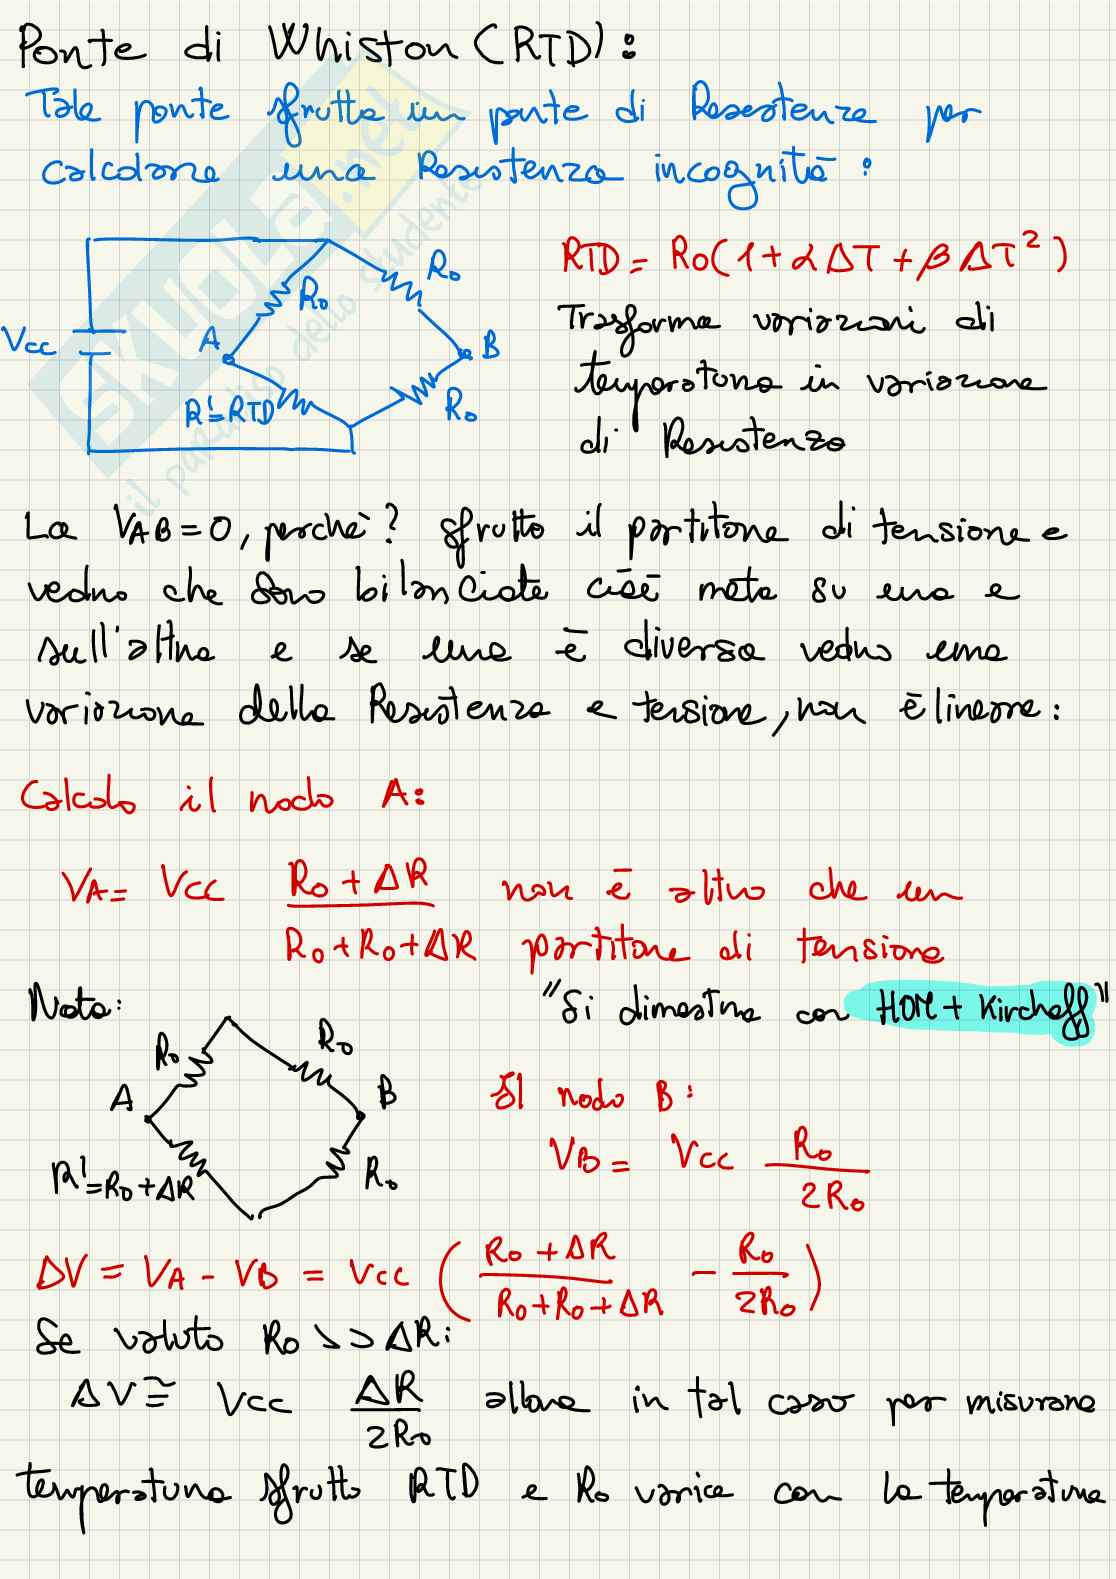 Ponte di Whiston (RTD):
Tale ponte sfrutta un ponte di Resistenze per
calcolare una Resistenza incognita:
RTD = R0(1+αΔT+βΔT²)
R0
R0
Trasforma variazioni di
Vcc
A
B
temperatura in variazione
R'=RTD
R0
di Resistenza
SKUOLA.net
il paradiso dello studente
La VAB=0, perchè? sfrutto il partitore di tensione e
vedrò che sono bilanciate cioè metà su una e
sull'altra e se una è diversa vedrò una
variazione della Resistenza e tensione, non è lineare:
Calcolo il nodo A:
VA= Vcc (R0+ΔR)/(R0+R0+ΔR) non è altro che un
partitore di tensione
Nota:
"Si dimostra con HOM + Kirchoff"
R0
R0
A
B
R'=R0+ΔR
R0
Al nodo B:
VB= Vcc R0/2R0
ΔV = VA - VB = Vcc ((R0+ΔR)/(R0+R0+ΔR) - R0/2R0)
Se valuto R0 >> ΔR:
ΔV ≅ Vcc ΔR/2R0 allora in tal caso per misurare
temperatura sfrutto RTD e R0 varia con la temperatura